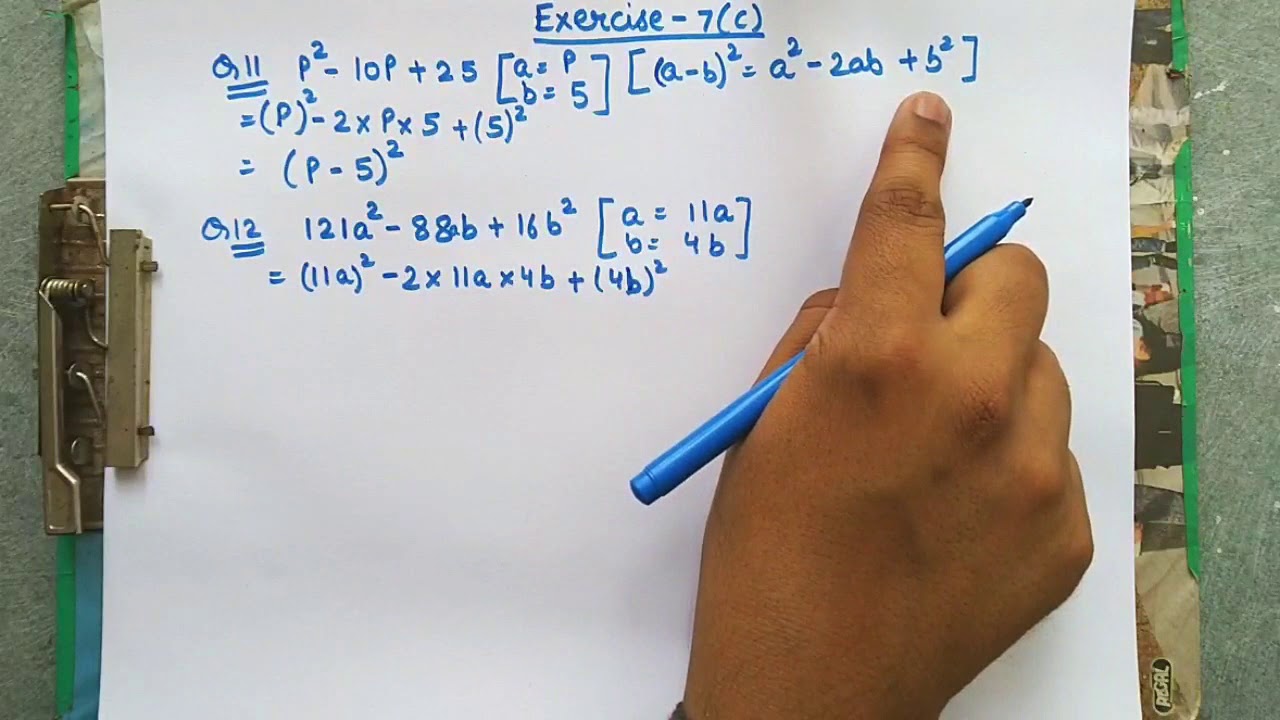 Exercise - 7(c)
Q11 P² - 10P + 25 [a = P b = 5] [(a-b)² = a² - 2ab + b²]
= (P)² - 2 × P × 5 + (5)²
= (P - 5)²
Q12 121a² - 88ab + 16b² [a = 11a b = 4b]
= (11a)² - 2 × 11a × 4b + (4b)²